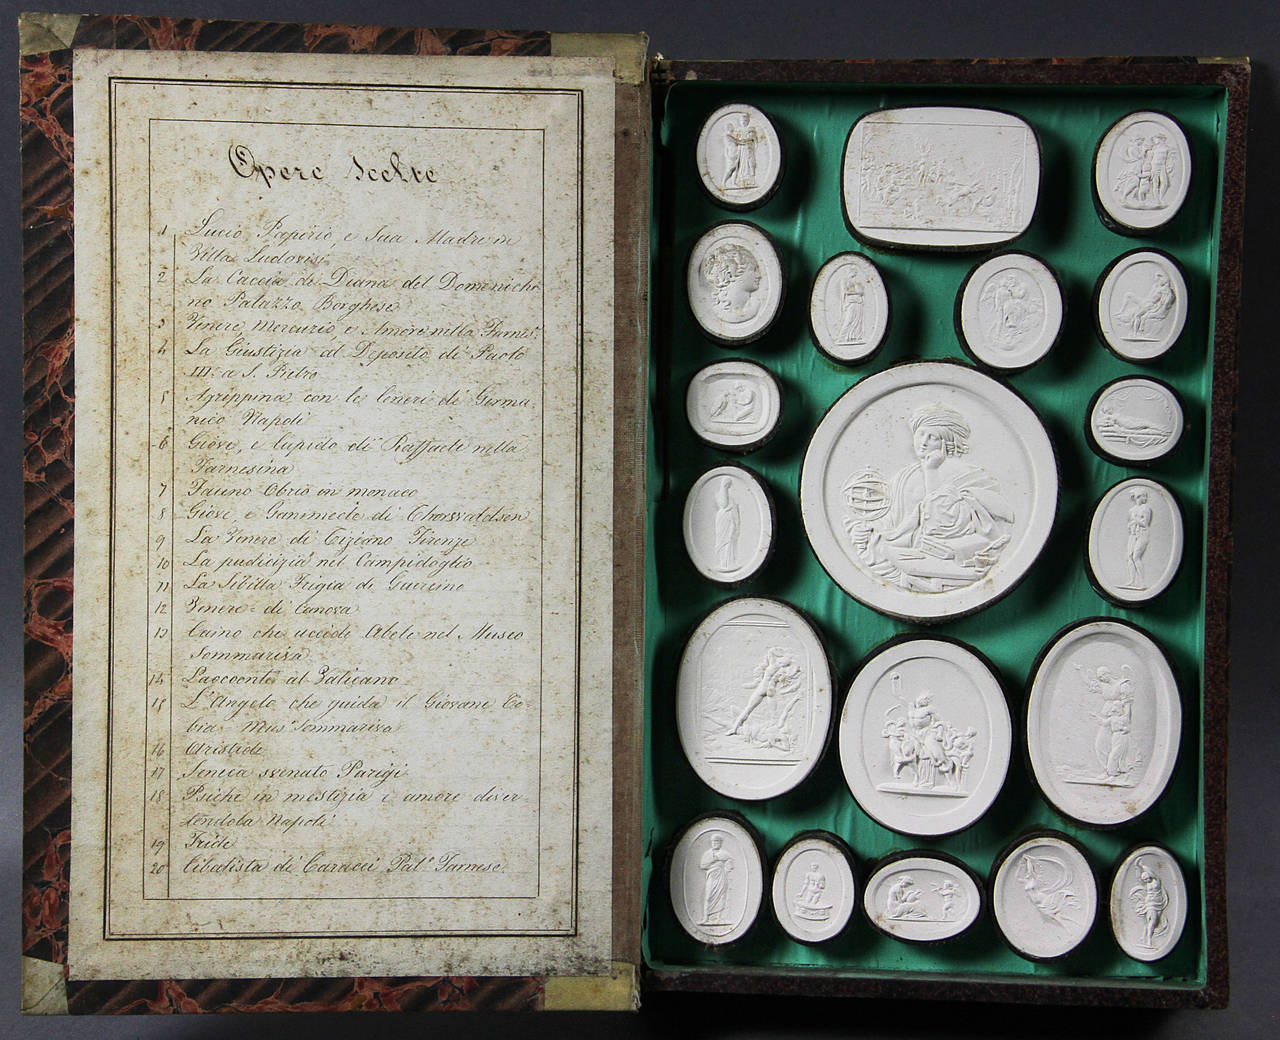 Opere Scelte
1 Lucio Papirio, e Sua Madre in
Villa Ludovisi
2 La Caccia di Diana del Domenichi
no Palazzo Borghese
3 Venere, Mercurio, e Amore nella Farnes.
4 La Giustizia al Deposito di Paolo
III. a S. Pietro
5 Agrippina con le Ceneri di Germa
nico Napoli
6 Giove, e Cupido di Raffaele nella
Farnesina
7 Fauno Obrio in monaco
8 Giove, e Ganimede di Thorsvaldsen
9 La Venere di Tiziano Firenze
10 La pudicizia nel Campidoglio
11 La Sibilla Frigia di Guercino
12 Venere di Canova
13 Caino che uccide Abele nel Museo
Sommariva
14 Laocoonte al Vaticano
15 L'Angelo che guida il Giovane To-
bia Mus. Sommariva
16 Aristide
17 Seneca svenato Parigi
18 Psiche in mestizia e amore diver-
tendola Napoli
19 Iride
20 Cibalista di Caracci Pal. Farnese